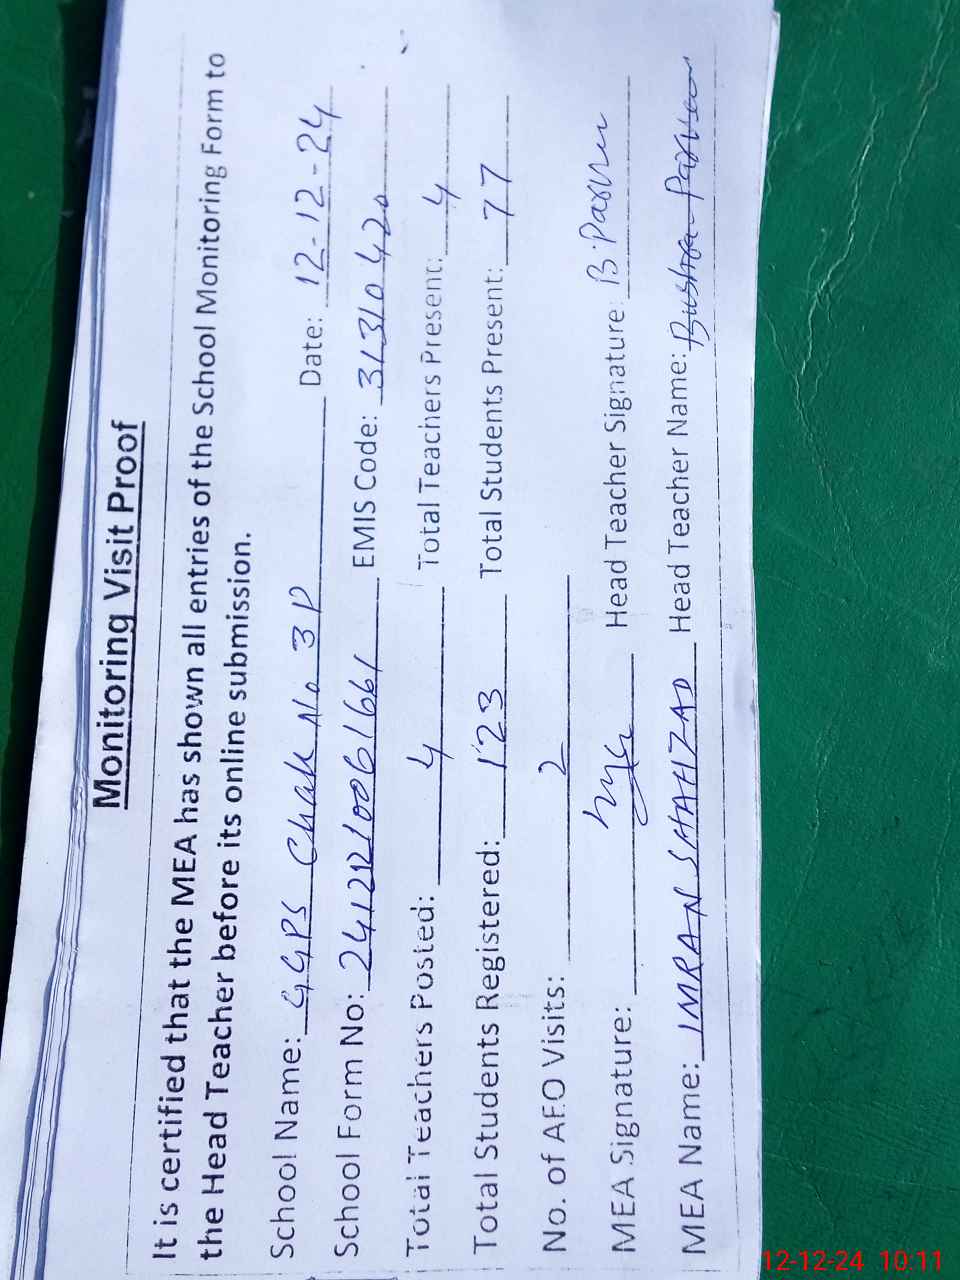 Monitoring Visit Proof
It is certified that the MEA has shown all entries of the School Monitoring Form to
the Head Teacher before its online submission.
School Name: GGPS Chak No 3P Date: 12-12-24
School Form No: 24121210061661 EMIS Code: 31310420
Total Teachers Posted: 4 Total Teachers Present: 4
Total Students Registered: 123 Total Students Present: 77
No. of AEO Visits: 2
MEA Signature: Head Teacher Signature: B.Parveen
MEA Name: IMRAN SHAHZAD Head Teacher Name: Bushra Parveen
12-12-24 10:11